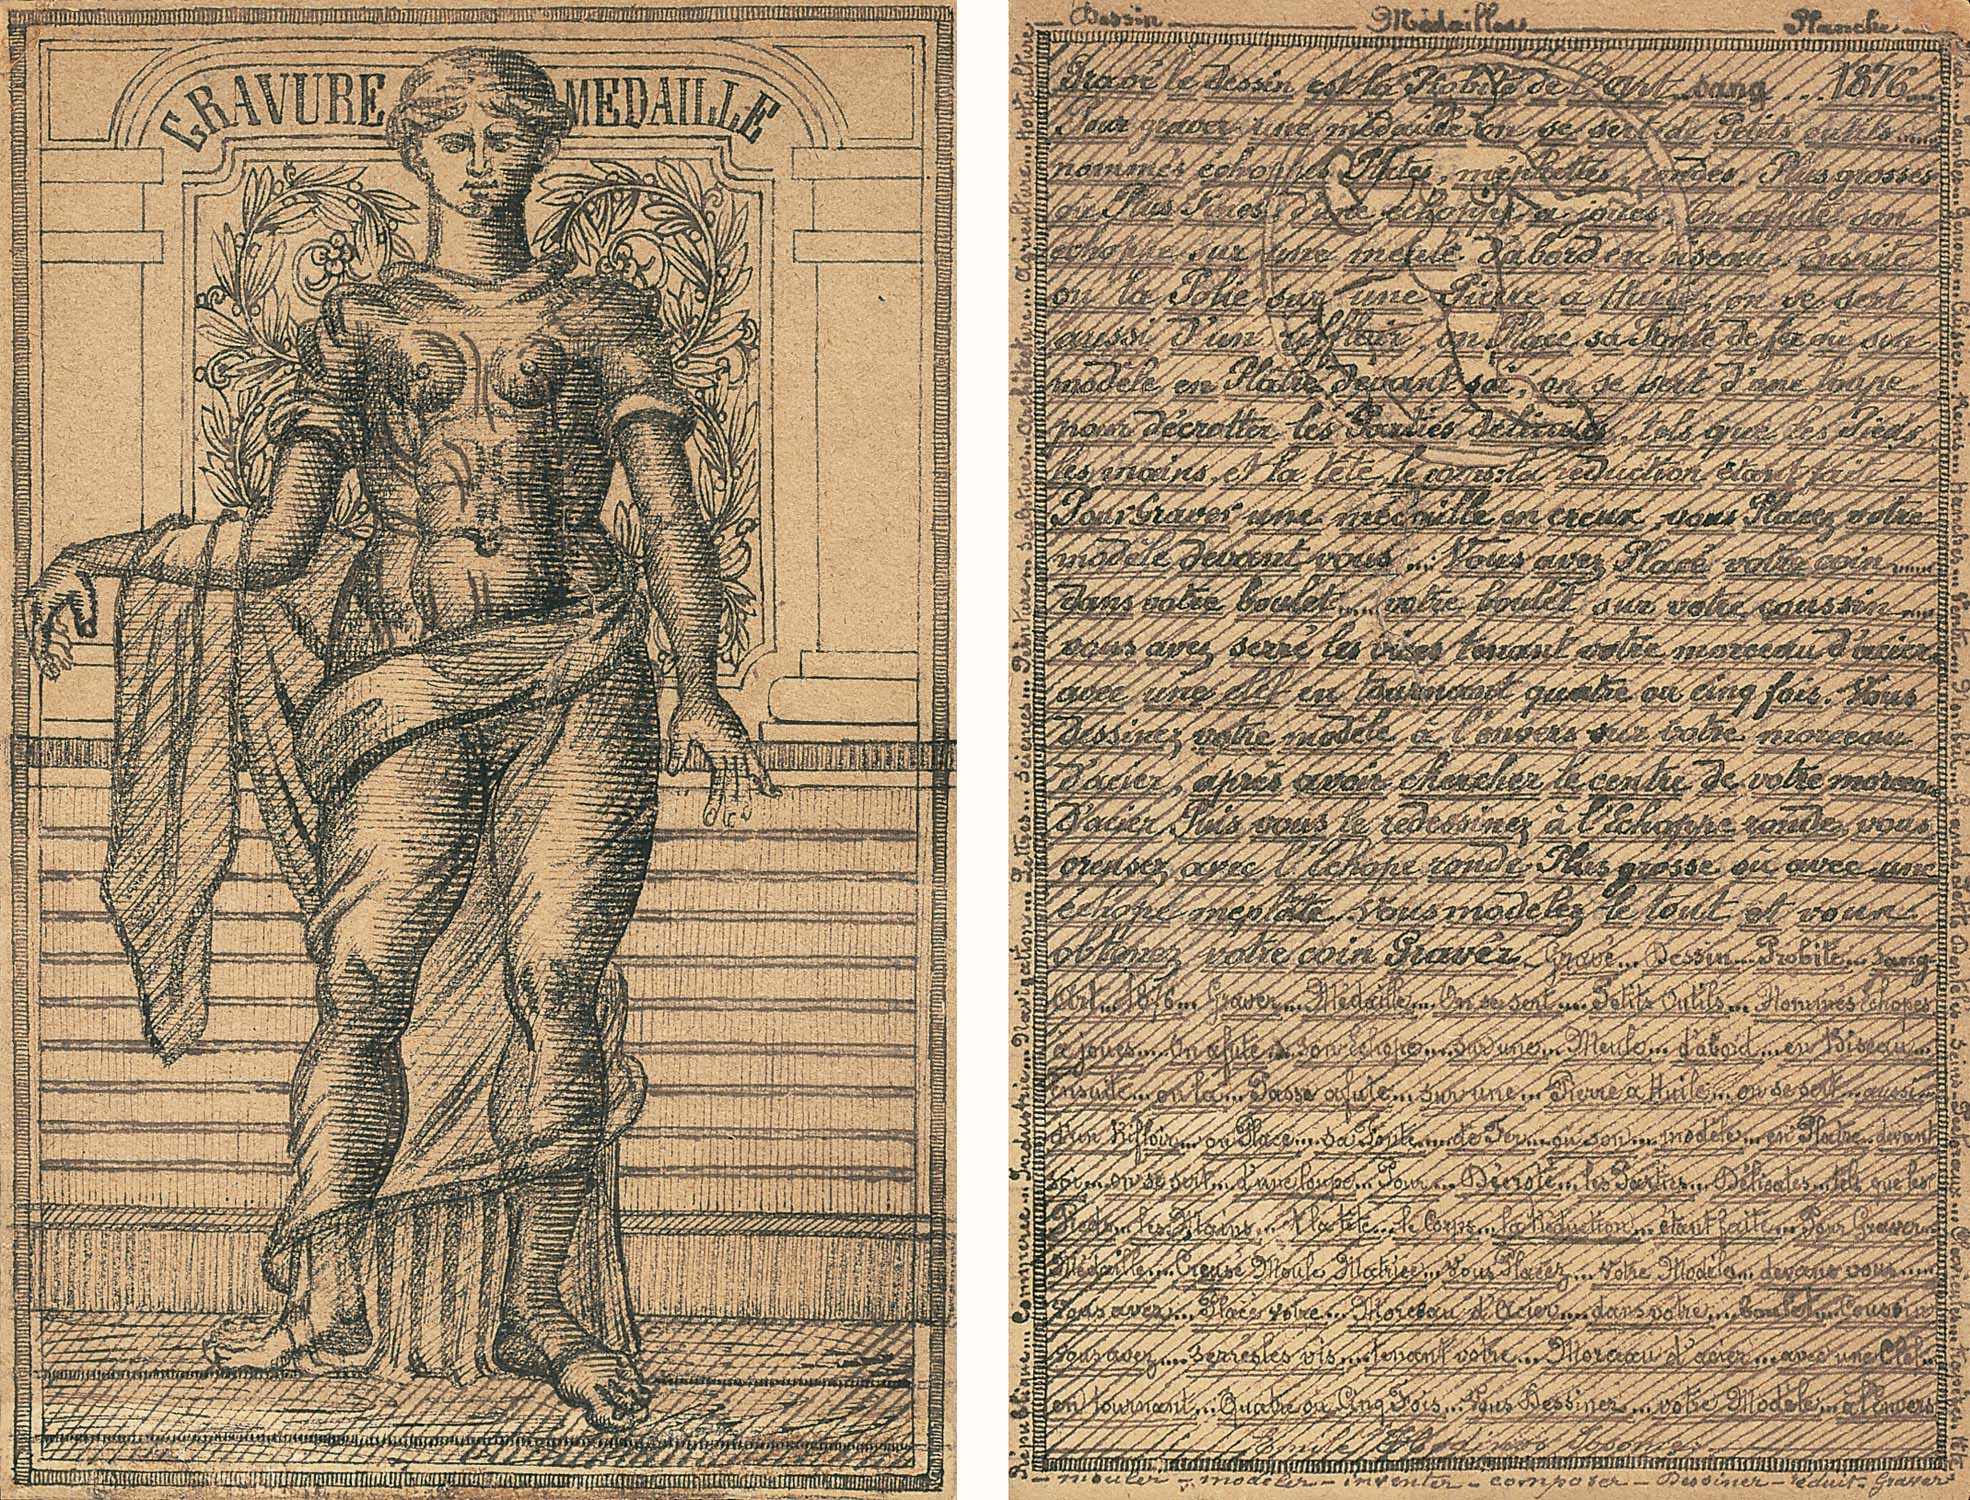 GRAVURE MEDAILLE
Dessin Médailles Planche
Gravé le dessin est la Probité de l'art sang 1876
Pour graver une médaille on se sert de Petits outils
nommés échoppes Plates, méplattes, rondes. Plus grosses
ou Plus Fines. d'une échoppe a joues. On affute son
echoppe sur une meule d'abord en biseau. Ensuite
on la Polie sur une Pierre à Huile, on se sert
aussi d'un riffloir, on Place sa Fonte de fer ou son
modèle en Plâtre devant soi, on se sert d'une loupe
pour décrotter les Parties Delicates, tels que les Pieds
les mains et la tête, le corps la réduction étant fait
Pour Graver une médaille en creux vous Placez votre
modèle devant vous... Vous avez Placé votre coin
dans votre boulet... votre boulet sur votre coussin
vous avez serré les vices tenant votre morceau d'acier
avec une clef en tournant quatre ou cinq fois. Vous
Dessinez votre modèle à l'envers sur votre morceau
D'acier, après avoir chercher le centre de votre morceau
D'acier Puis vous le redessinez à l'Echoppe ronde, vous
creusez avec l'échope ronde Plus grosse ou avec une
échope méplate. Vous modelez le tout et vous
obtenez votre coin Gravér. Gravé... Dessin... Probité... Sang
Art... 1876... Graver... Médaille... On se sert... Petits Outils... Nommés Echopes
a joues... On afute... son Echope... sur une... Meule... d'abord... en Biseau...
Ensuite... on la... Passe afute... sur une... Pierre à Huile... on se sert... aussi...
d'un Rifloir... on Place... sa Fonte... de Fer... ou son... modèle... en Platre... devant
soi... on se sert... d'une loupe... Pour... Décroté... les Parties... Délicates... tels que les
Pieds... les Mains... et la tête... le Corps... la Réduction... étant faite... Pour Graver...
Médaille... Creusé Moule Matrice... Vous Placez... votre Modèle... devant vous...
Vous avez... Placés votre... Morceau d'Acier... dans votre... boulet... Coussin
Vous avez... Serrés les vis... tenant votre... Morceau d'acier... avec une Clef...
en tournant... Quatre ou Cinq Fois... Vous Dessinez... votre Modèle... à l'envers
mouler - modeler - inventer - composer - Dessiner - réduit - Graver
République... Commerce... Industrie... Navigation... Lettres... Sciences... Peinture... sculpture... architecture... agriculture... Horticulture